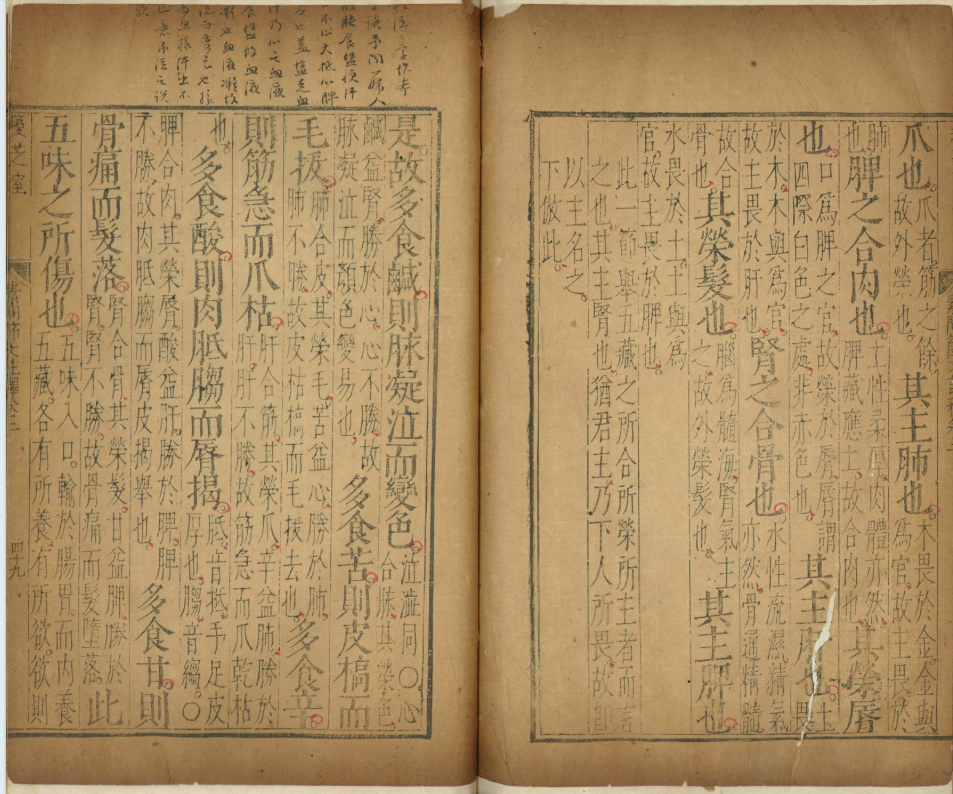 爪也。爪者筋之餘。故外榮也。其主肺也。木畏於金金與為官故主畏於
肺也。脾之合肉也。土性柔厚肉體亦然。脾藏應土。故合肉也。其榮唇
也。口為脾之官。故榮於唇。唇謂四際白色之處。非赤色也。其主肝也。土畏
於木。木與為官。故主畏於肝也。腎之合骨也。水性流濕精氣亦然骨通精髓
故合骨也。其榮髮也。腦為髓海腎氣主之故外榮髮也。其主脾也。
水畏於土。土與為官。故主畏於脾也。
此一節舉五藏之所合所榮所主者而言之也。其主腎也猶君主乃下人所畏故即
以主名之。下倣此。
是故多食鹹。則脉凝泣而變色。泣澁同。○心合脉其榮色。
鹹益腎。勝於心。心不勝。故脉凝泣而顏色變易也。多食苦。則皮槁而
毛拔。肺合皮。其榮毛。苦益心。勝於肺。肺不勝。故皮枯槁而毛拔去也。多食辛。
則筋急而爪枯。肝合筋。其榮爪。辛益肺。勝於肝。肝不勝。故筋急而爪乾枯
也。多食酸。則肉胝䐢而唇揭。胝音抵手足皮厚也。䐢音縐。○
脾合肉。其榮唇。酸益肝。勝於脾。脾不勝。故肉胝䐢而唇皮揭舉也。多食甘。則
骨痛而髮落。腎合骨其榮髮。甘益脾。勝於腎。腎不勝。故骨痛而髮墮落此
五味之所傷也。五味入口。輸於腸胃而内養五藏。各有所養有所欲。欲則
四十九